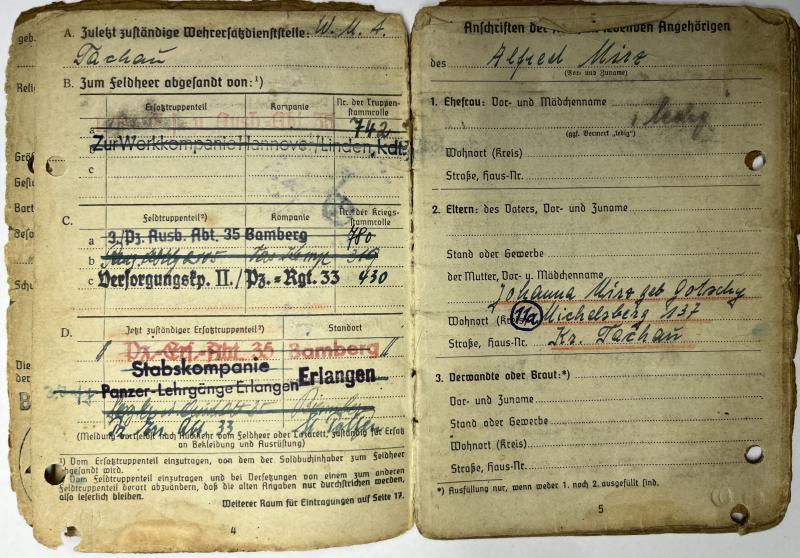 A. Zuletzt zuständige Wehrersatzdienststelle: W. M. A.
Tachau
B. Zum Feldheer abgesandt von:¹)
Ersatztruppenteil
Kompanie
Nr. der Truppenstammrolle
a
742
Zur Werkkompanie Hannover/Linden, kdt.
c
C.
Feldtruppenteil²)
Kompanie
Nr. der Kriegsstammrolle
a 3./Pz. Ausb. Abt. 35 Bamberg 780
b
c Versorgungskp. II./Pz.-Rgt. 33 430
D.
Jetzt zuständiger Ersatztruppenteil²)
Standort
Pz.-Ers.-Abt. 35 Bamberg
Stabskompanie
Panzer-Lehrgänge Erlangen
Erlangen
Pz. Ers. Abt. 33 St. Pölten
(Meldung dortselbst nach Rückkehr vom Feldheer oder Lazarett, zuständig für Ersatz
an Bekleidung und Ausrüstung)
¹) Vom Ersatztruppenteil einzutragen, von dem der Soldbuchinhaber zum Feldheer
abgesandt wird.
²) Vom Feldtruppenteil einzutragen und bei Versetzungen von einem zum anderen
Feldtruppenteil derart abzuändern, daß die alten Angaben nur durchstrichen werden,
also leserlich bleiben.
Weiterer Raum für Eintragungen auf Seite 17.
4
Anschriften der lebenden Angehörigen
des Alfred Mirz
(Vor- und Zuname)
1. Ehefrau: Vor- und Mädchenname
ledig
(ggf. Vermerk „ledig")
Wohnort (Kreis)
Straße, Haus-Nr.
2. Eltern: des Vaters, Vor- und Zuname
Stand oder Gewerbe
der Mutter, Vor- u. Mädchenname
Johanna Mirz geb.
Wohnort (Kreis) 11a Michelsberg 137
Straße, Haus-Nr. Kr. Tachau
3. Verwandte oder Braut:*)
Vor- und Zuname
Stand oder Gewerbe
Wohnort (Kreis)
Straße, Haus-Nr.
*) Ausfüllung nur, wenn weder 1. noch 2. ausgefüllt sind.
5